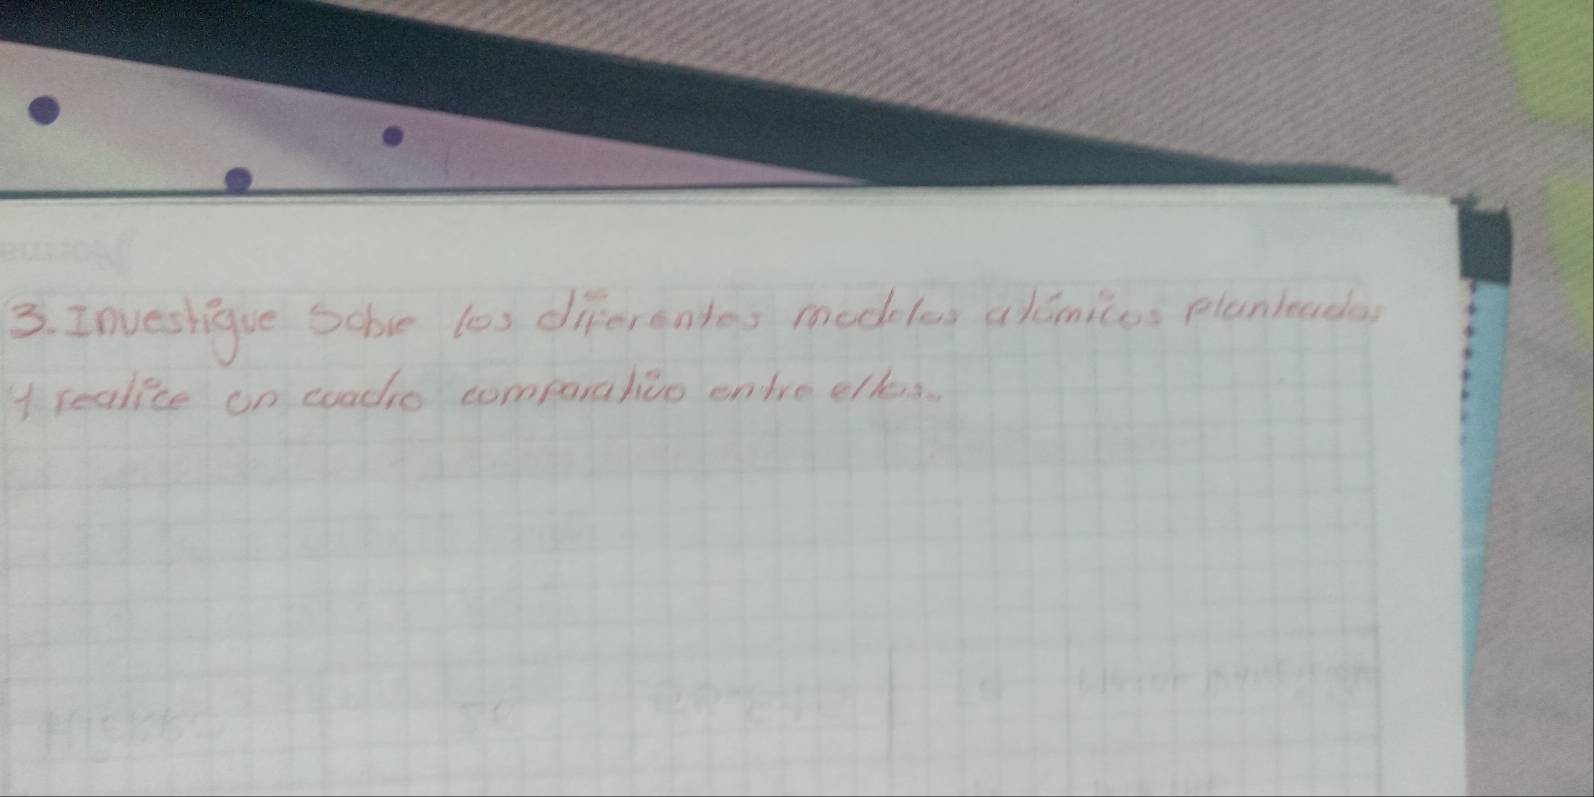 3. Investigue sobre los diferentes modelos atómicos planteados
y realice un cuadro comparativo entre ellos.